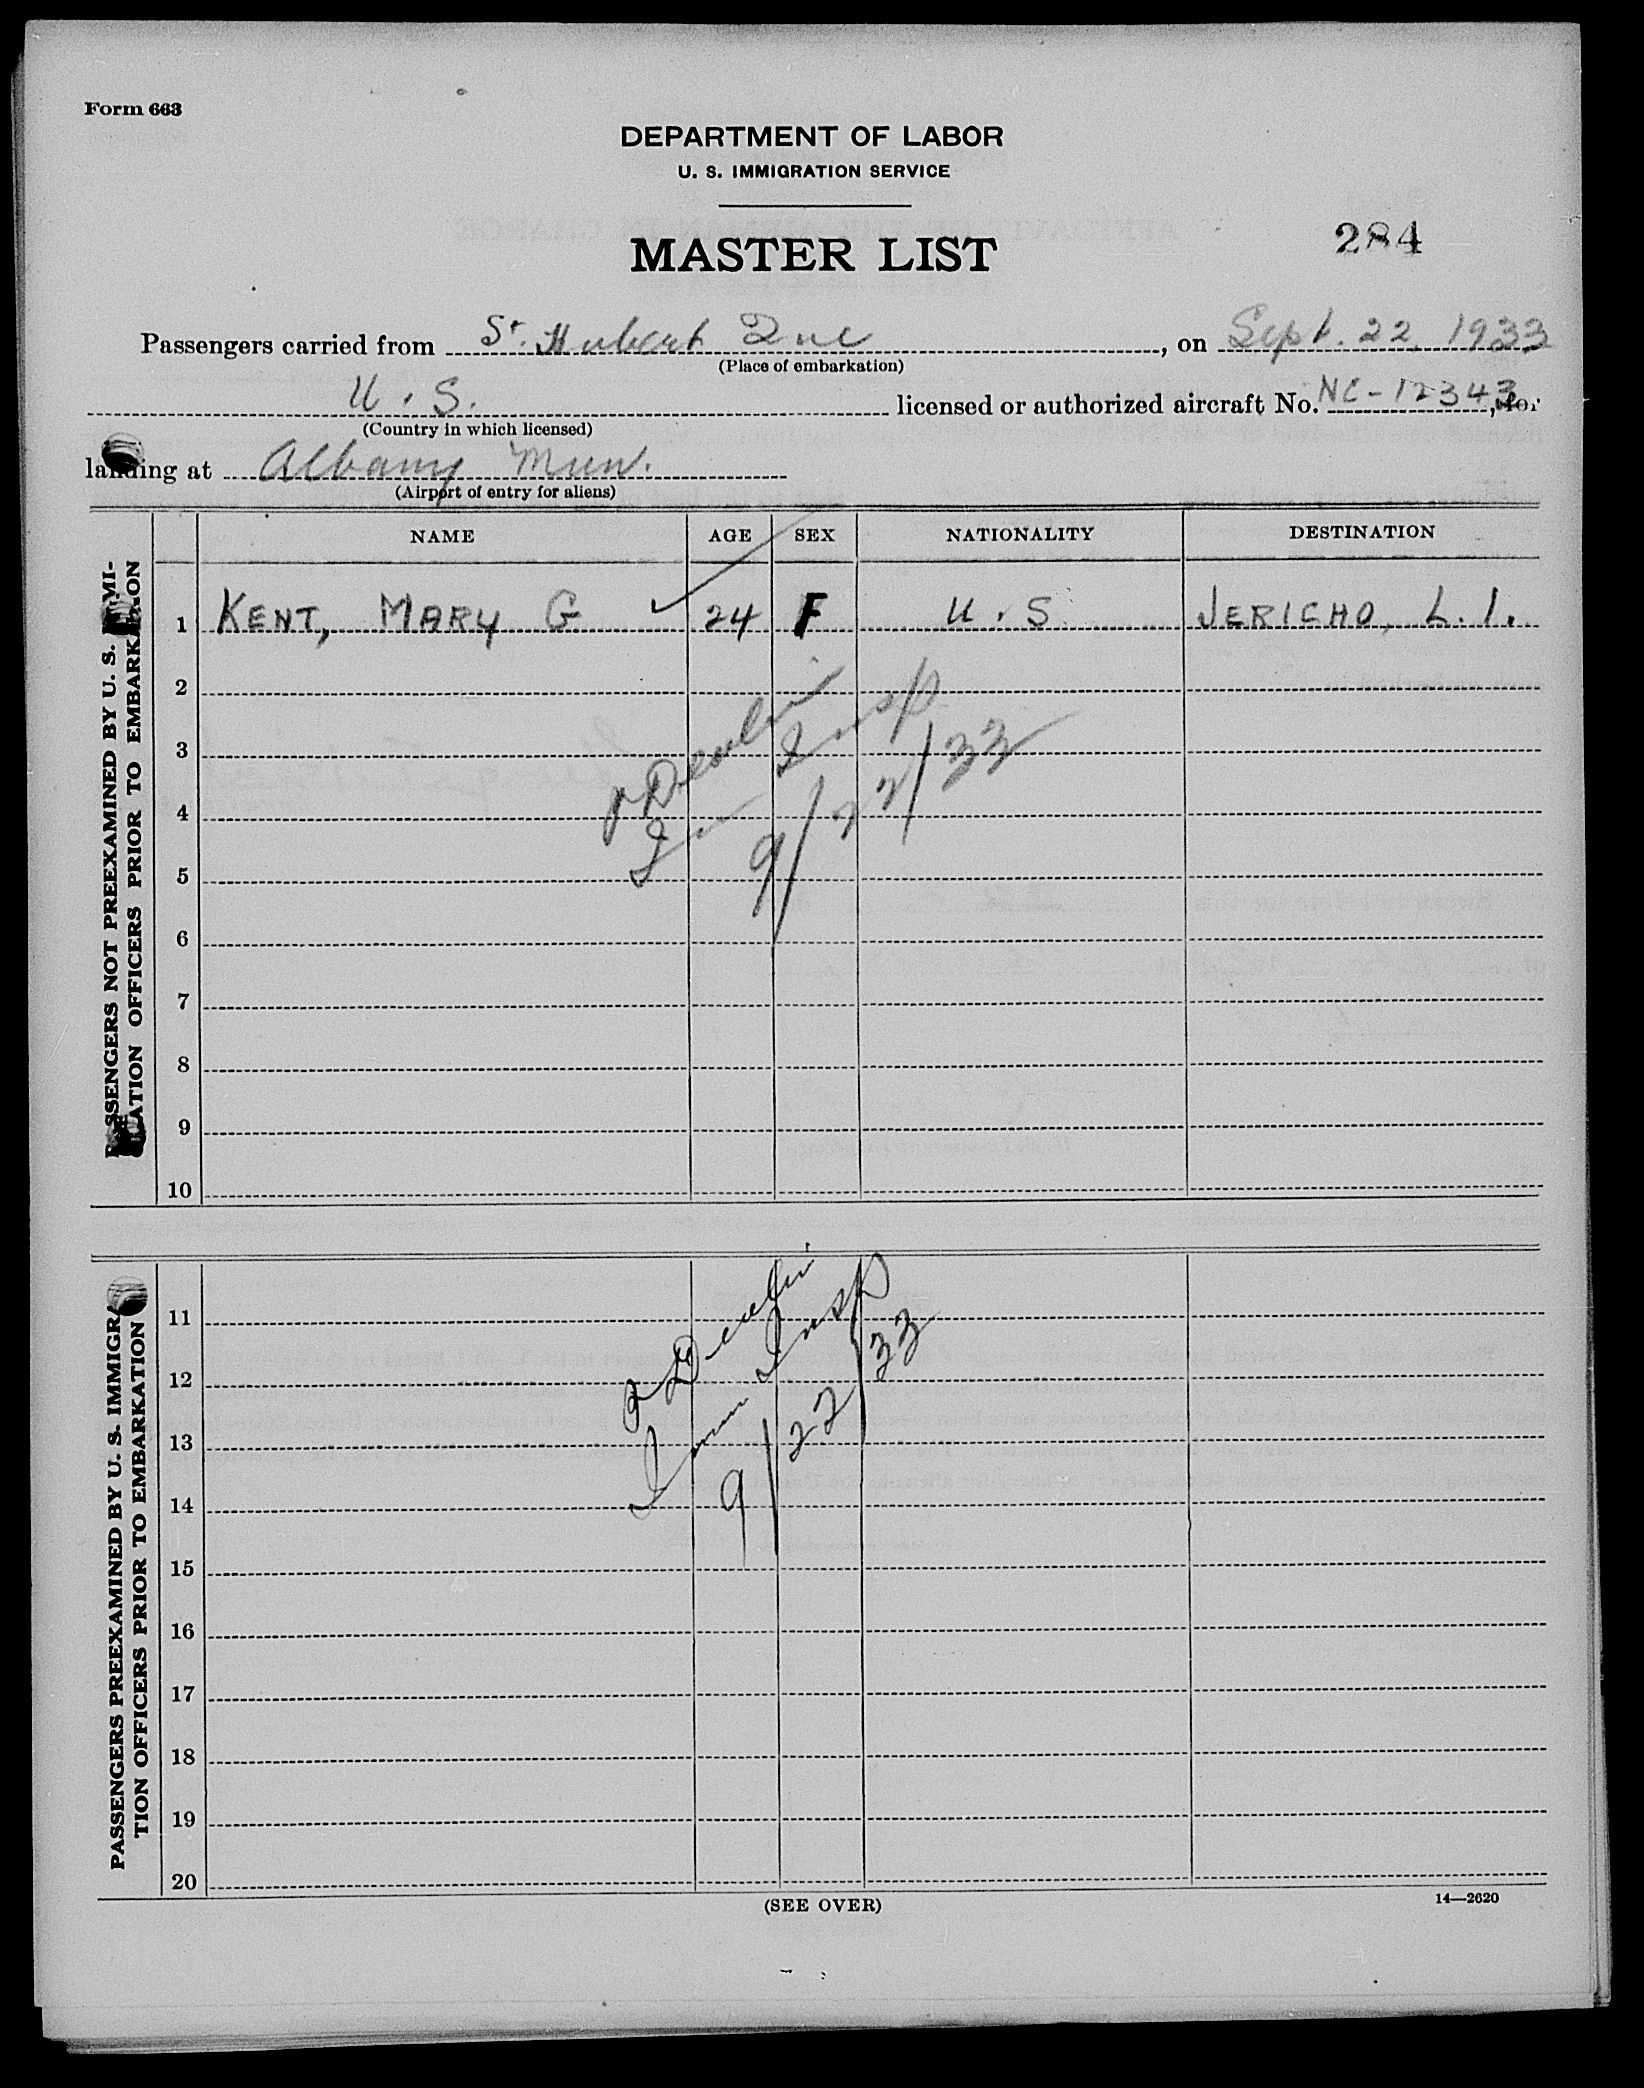 Form 663
DEPARTMENT OF LABOR
U. S. IMMIGRATION SERVICE
MASTER LIST
284
Passengers carried from St. Hubert Que, on Sept. 22, 1933
(Place of embarkation)
U.S. licensed or authorized aircraft No. NC-12343, for
(Country in which licensed)
landing at Albany Mun.
(Airport of entry for aliens)
NAME AGE SEX NATIONALITY DESTINATION
PASSENGERS NOT PREEXAMINED BY U. S. IMMI-
GRATION OFFICERS PRIOR TO EMBARKATION
1 KENT, MARY G 24 F U.S JERICHO, L.I.
2
3
4
5
6
7
8
9
10
Devlin
Imm Insp
9/22/33
PASSENGERS PREEXAMINED BY U. S. IMMIGRA-
TION OFFICERS PRIOR TO EMBARKATION
11
12
13
14
15
16
17
18
19
20
Devlin
Imm Insp
9/22/33
(SEE OVER)
14—2620